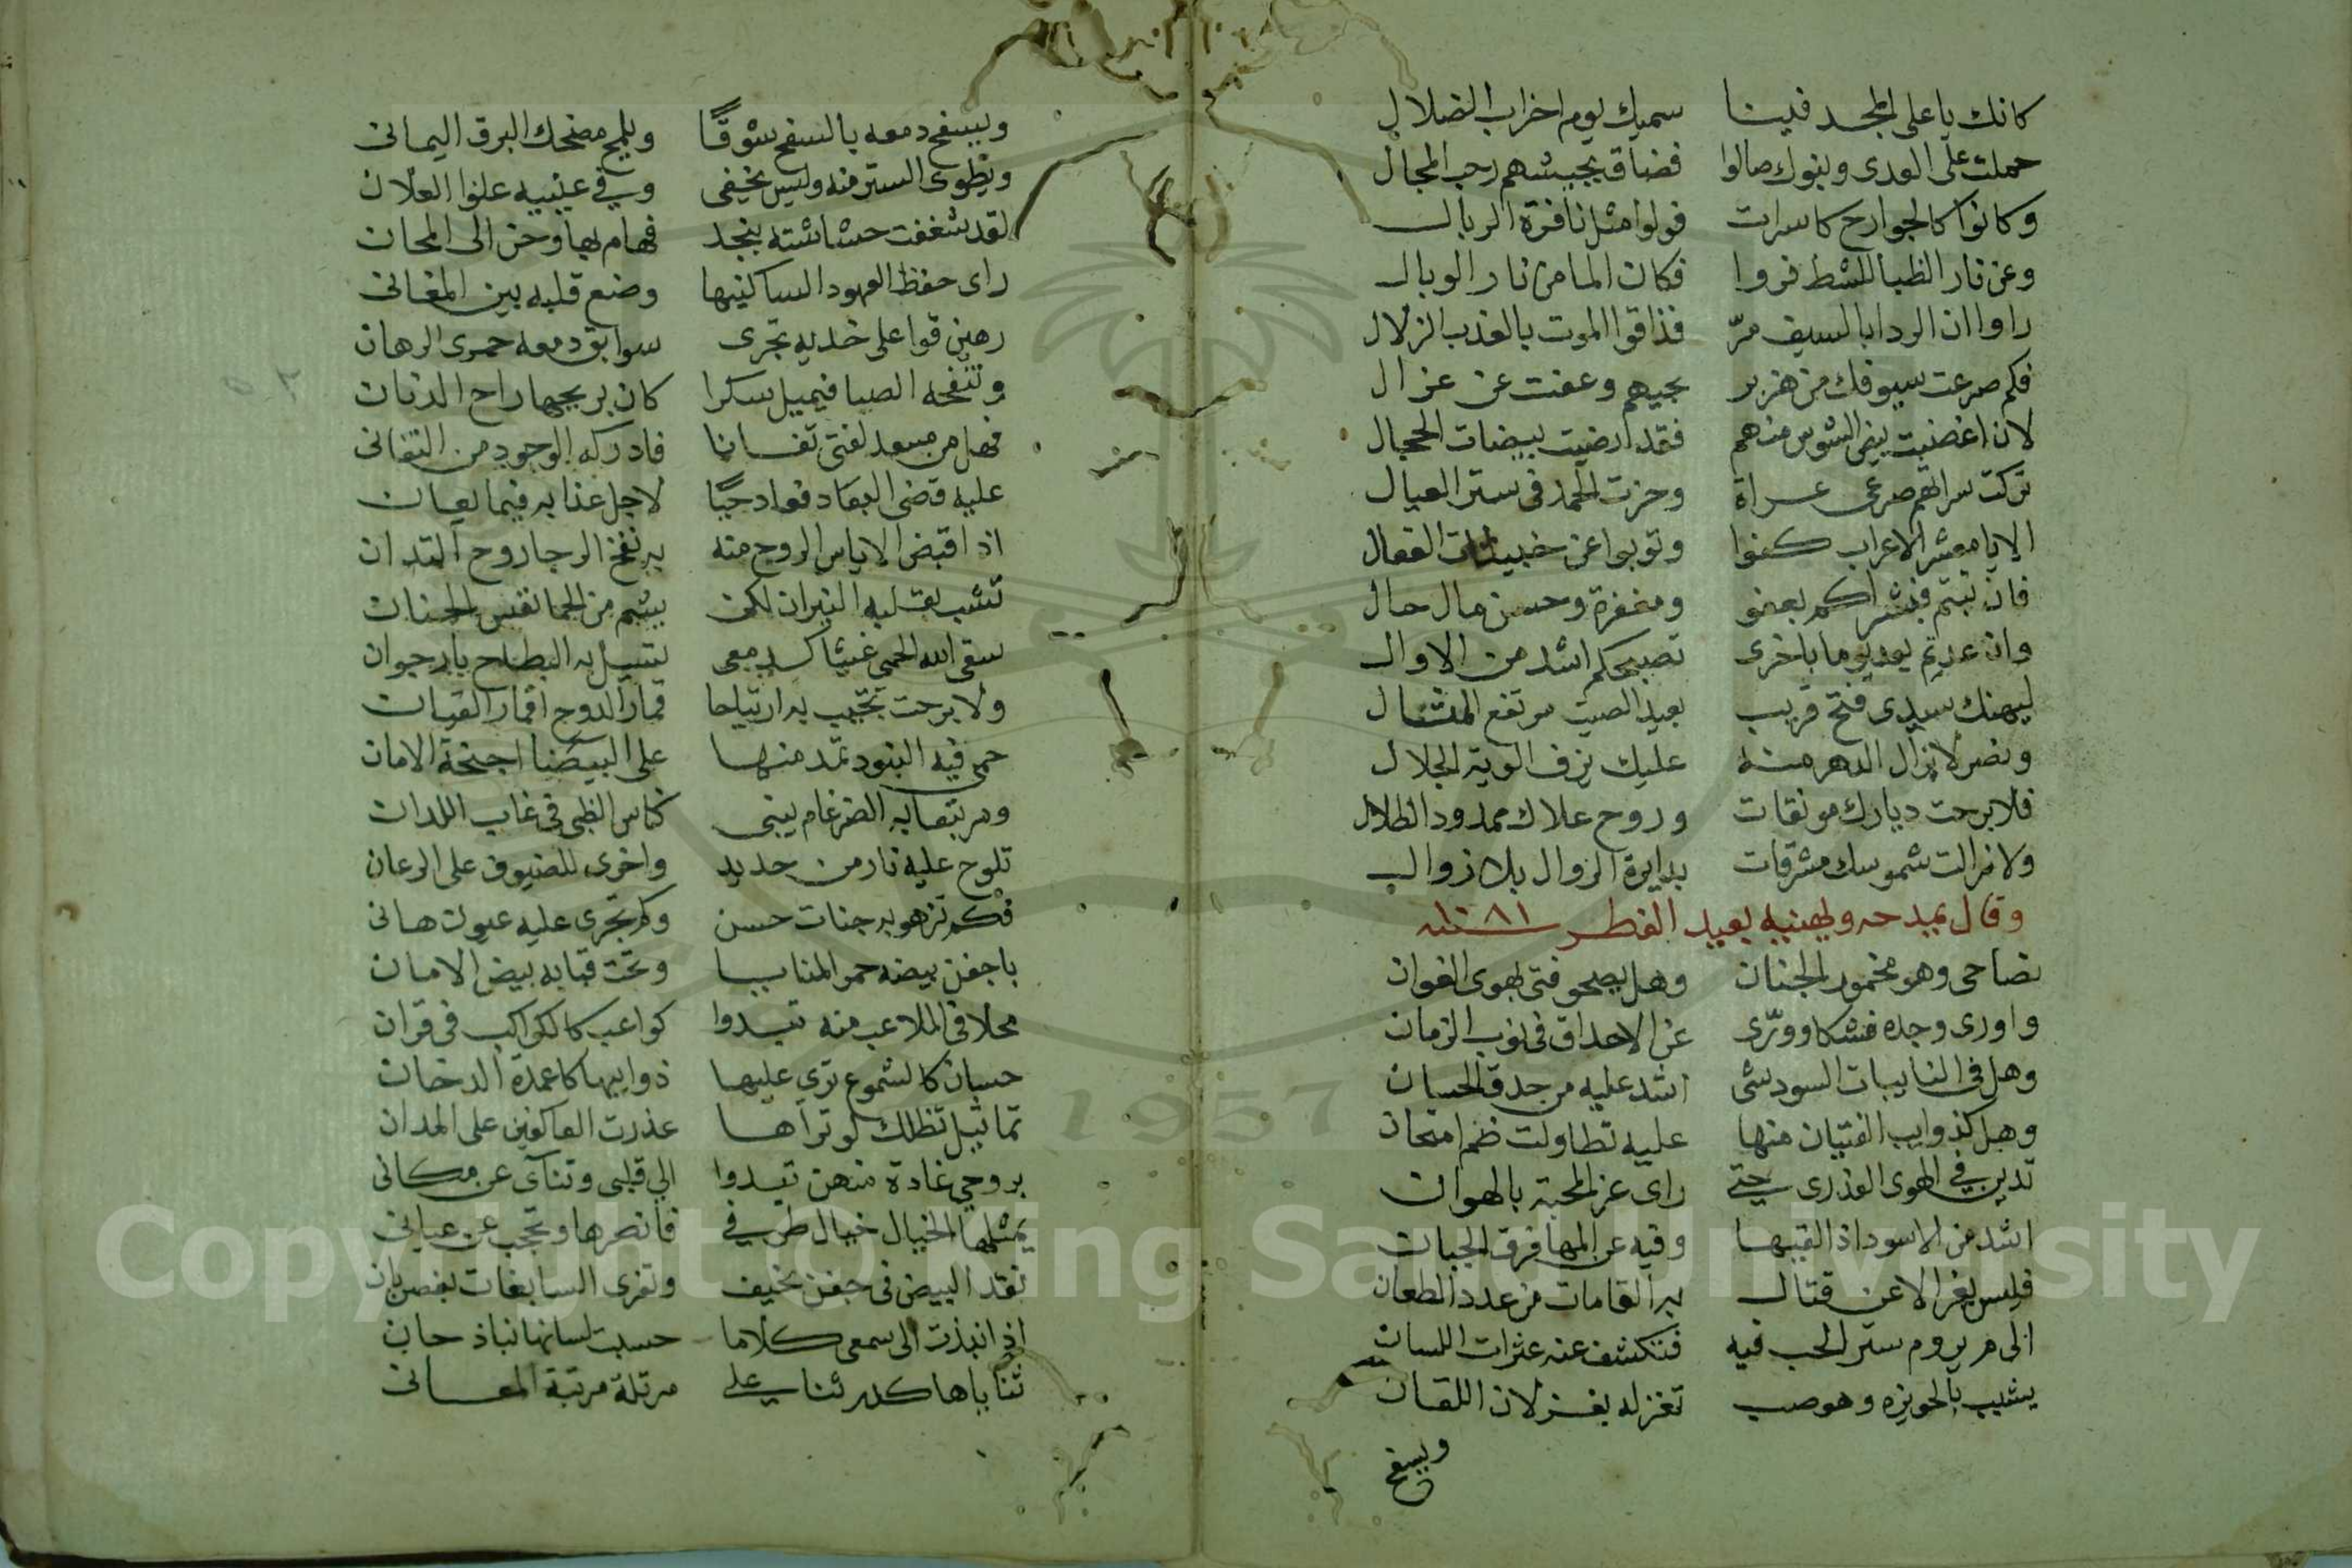 كانك يا على المجد فينا سميك يوم اخراب الضلال
حملت على العدى وبنوك صالوا فضاق بجيشهم رحب المجال
وكانوا كالجوارح كاسرات فولوا مثل نافرة الربال
وعن نار الظبا للشط فروا فكان الما من نار الوبال
راوا ان الردا بالسيف مرّ فذاقوا الموت بالعذب الزلال
فكم صرعت سيوفك من هزبر بجيهم وعفت عن غزال
لان اغضبت بيض الشوس منهم فقد ارضيت بيضات الحجال
تركت سراتهم صرعى عراة وحزت الحمد فى ستر العيال
الا يا معشر الاعراب كفوا وتوبوا عن خبيثات الفعال
فان تبتم فبشراكم بعفو ومغفرة وحسن مال حال
وان عدتم يعد يوما باخرى تصبحكم اشد من الاوال
ليهنك سيدى فتح قريب بعيد الصيت مرتفع المثال
ونصر لا يزال الدهر منه عليك يزف الوية الجلال
فلا برحت ديارك مونقات وروح علاك ممدود الظلال
ولا زالت شموسك مشرقات بدايرة الزوال بلا زوال
وقال يمدحه ويهنيه بعيد الفطر سنة ١٠٨١
تصاحى وهو مخمور الجنان وهل يصحو فتى يهوى الغوان
واورى وجده فشكا وورّى عن الاحداق فى نوب الزمان
وهل فى النايبات السود شى اشد عليه من حدق الحسان
وهل كذوايب الفتيان منها عليه تطاولت ظم امتحان
تدين فى الهوى العذرى حتى راى عز المحبة بالهوان
اشد من الاسود اذا لقيها وفيه عن المها فرق الجبان
فليس يفر الا عن قتال به القامات من عدد الطعان
الى م يروم ستر الحب فيه فتكشف عنه عثرات اللسان
يشبب بالحويزه وهو صب تغزله بغزلان اللقان
ويسفح
ويسفح دمعه بالسفح شوقًا ويلمح مضحك البرق اليمانى
ويطوى الستر منه وليس يخفى وفى عينيه علنوا العلان
لقد شغفت حشاشته بنجد فهام بها وحن الى المحان
راى حفظ العهود الساكنيها وضع قلبه بين المغانى
رهين قوا على خديه تجرى سوابق دمعه جرى الرهان
وتنفحه الصبا فيميل سكرا كان بريحها راح الدنان
فهل من مسعد لفتى تفانا فادركه الوجود من التفانى
عليه قضى البعاد فعاد حيًا لاجل عذابه فيما يعان
اذا قبض الاياس الروح منه به نفخ الرجا روح التدان
تشب بقلبه النيران لكن يشم من الحما نفس الجنان
سقى الله الحمى غيثا كدمعى يسيل به البطاح بارجوان
ولا برحت تجيب به ارتياحا قمار الدوح اقمار القيان
حمى فيه البنود تمد منها على البيضا اجنحة الامان
ومرتبعا به الضرغام يبنى كناس الظبى فى غاب اللدان
تلوح عليه نار من حديد واخرى للضيوف على الرعان
فكم تزهو به جنات حسن وكم تجرى عليه عيون هانى
باجفن بيضه حمر المنايا وتحت قبابه بيض الامان
محلا فى الملاعب منه تبدوا كواعب كالكواكب فى قران
حسان كالشموع ترى عليها ذوايبها كاعمدة الدخان
تماثيل تظلك لو تراها عذرت العاكفين على المدان
بروحى غادة منهن تبدوا الى قلبى وتناى عن مكانى
يمثلها الخيال خيال طرفى فانصرها وتحجب عن عيانى
تقد البيض فى جفن نحيف وتفرى السابغات بغصن بان
اذا نبذت الى سمعى كلاما حسبت لسانها نباذ حان
ثناياها كدر ثناى على مرتلة مرتبة المعانى